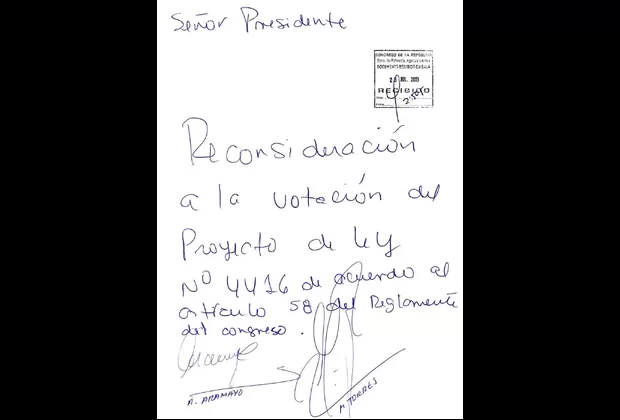 Señor Presidente
CONGRESO DE LA REPÚBLICA
RECIBIDO
Reconsideración
a la votación del
Proyecto de Ley
Nº 4416 de acuerdo al
artículo 58 del Reglamente
del congreso.
A. ARAMAYO
M TORRES